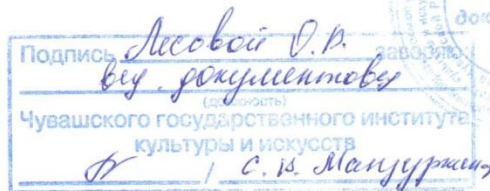 Подпись Лесовой О.В. заверяю:
вед. документовед
(должность)
Чувашского государственного института
культуры и искусств
/ С.В.
док